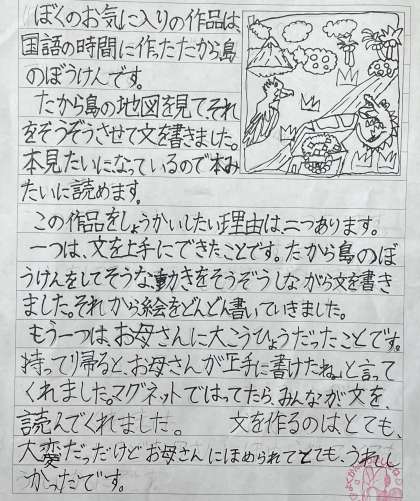 ぼくのお気に入りの作品は
国語の時間に作ったたから島
のぼうけんです。
たから島の地図を見て、それ
をぞうぞうさせて文を書きました。
本見たいになっているので本み
たいに読めます。
この作品をしょうかいしたい理由は二つあります。
一つは、文を上手にできたことです。たから島のぼ
うけんをしてそうな動きをそうぞうしながら文を書き
ました。それから絵をどんどん書いていきました。
もう一つは、お母さんに大こうひょうだったことです。
持って帰ると、お母さんが「上手に書けたね。」と言って
くれました。マグネットではってたら、みんなが文を、
読んでくれました。 文を作るのはとても、
大変だっだけどお母さんにほめられてとても、うれし
かったです。